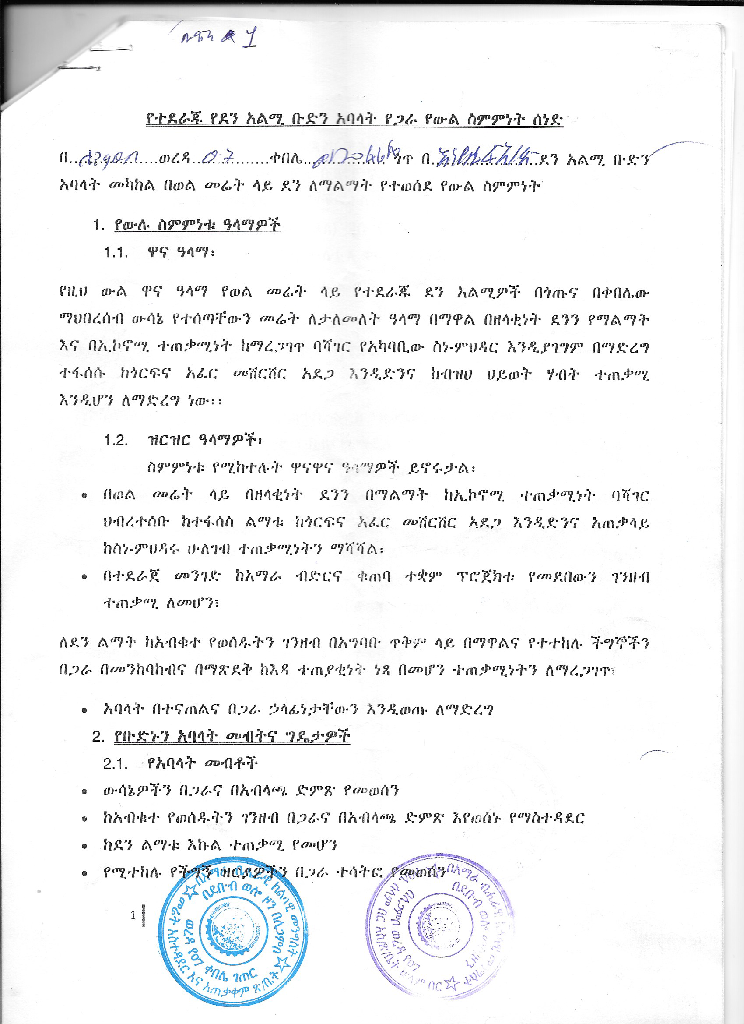 የተደራጁ የደን አልሚ ቡድን አባላት የጋራ የውል ስምምነት ሰነድ
በ ወረዳ 07 ቀበሌ ጎጥ በ ደን አልሚ ቡድን
አባላት መካከል በወል መሬት ላይ ደን ለማልማት የተወሰደ የውል ስምምነት
1. የውሉ ስምምነቱ ዓላማዎች
1.1. ዋና ዓላማ፡
የዚህ ውል ዋና ዓላማ የወል መሬት ላይ የተደራጁ ደን አልሚዎች በጎጡና በቀበሌው
ማህበረሰብ ውሳኔ የተሰጣቸውን መሬት ለታለመለት ዓላማ በማዋል በዘላቂነት ደንን የማልማት
እና በኢኮኖሚ ተጠቃሚነት ከማረጋገዋ ባሻገር የአካባቢው ስነ-ምህዳር እንዲያገግም በማድረግ
ተፋሰሱ ከጎርፍና አፈር መሸርሸር አደጋ እንዲድንና ከብዝሀ ህይወት ሃብት ተጠቃሚ
እንዲሆን ለማድረግ ነው፡፡
1.2. ዝርዝር ዓላማዎች፡
ስምምነቱ የሚከተሉት ዋናዋና ዓላማዎች ይኖሩታል፡
• በወል መሬት ላይ በዘላቂነት ደንን በማልማት ከኢኮኖሚ ተጠቃሚነት ባሻገር
ህብረተሰቡ ከተፋሰስ ልማቱ ከጎርፍና አፈር መሸርሸር አደጋ እንዲድንና አጠቃላይ
ከስነ-ምህዳሩ ሁለገብ ተጠቃሚነትን ማሻሻል፡
• በተደራጀ መንገድ ከአማራ ብድርና ቁጠባ ተቋም ፕሮጀክቱ የመደበውን ገንዘብ
ተጠቃሚ ለመሆን፣
ለደን ልማት ከአብቁተ የወሰዱትን ገንዘብ በአግባቡ ጥቅም ላይ በማዋልና የተተከሉ ችግኞችን
በጋራ በመንከባከብና በማጽደቅ ከእዳ ተጠያቂነት ነጻ በመሆን ተጠቃሚነትን ለማረጋገዋ፣
• አባላት በተናጠልና በጋራ ኃላፊነታቸውን እንዲወጡ ለማድረግ
2. የቡድኑን አባላት መብትና ግዴታዎች
2.1. የአባላት መብቶች
• ውሳኔዎችን በጋራና በአብላጫ ድምጽ የመወሰን
• ከአብቁተ የወሰዱትን ገንዘብ በጋራና በአብላጫ ድምጽ እየወሰኑ የማስተዳደር
• ከደን ልማቱ እኩል ተጠቃሚ የመሆን
• የሚተከሉ የችግኝ ዝርያዎችን በጋራ ተሳትፎ የመወሰን
1